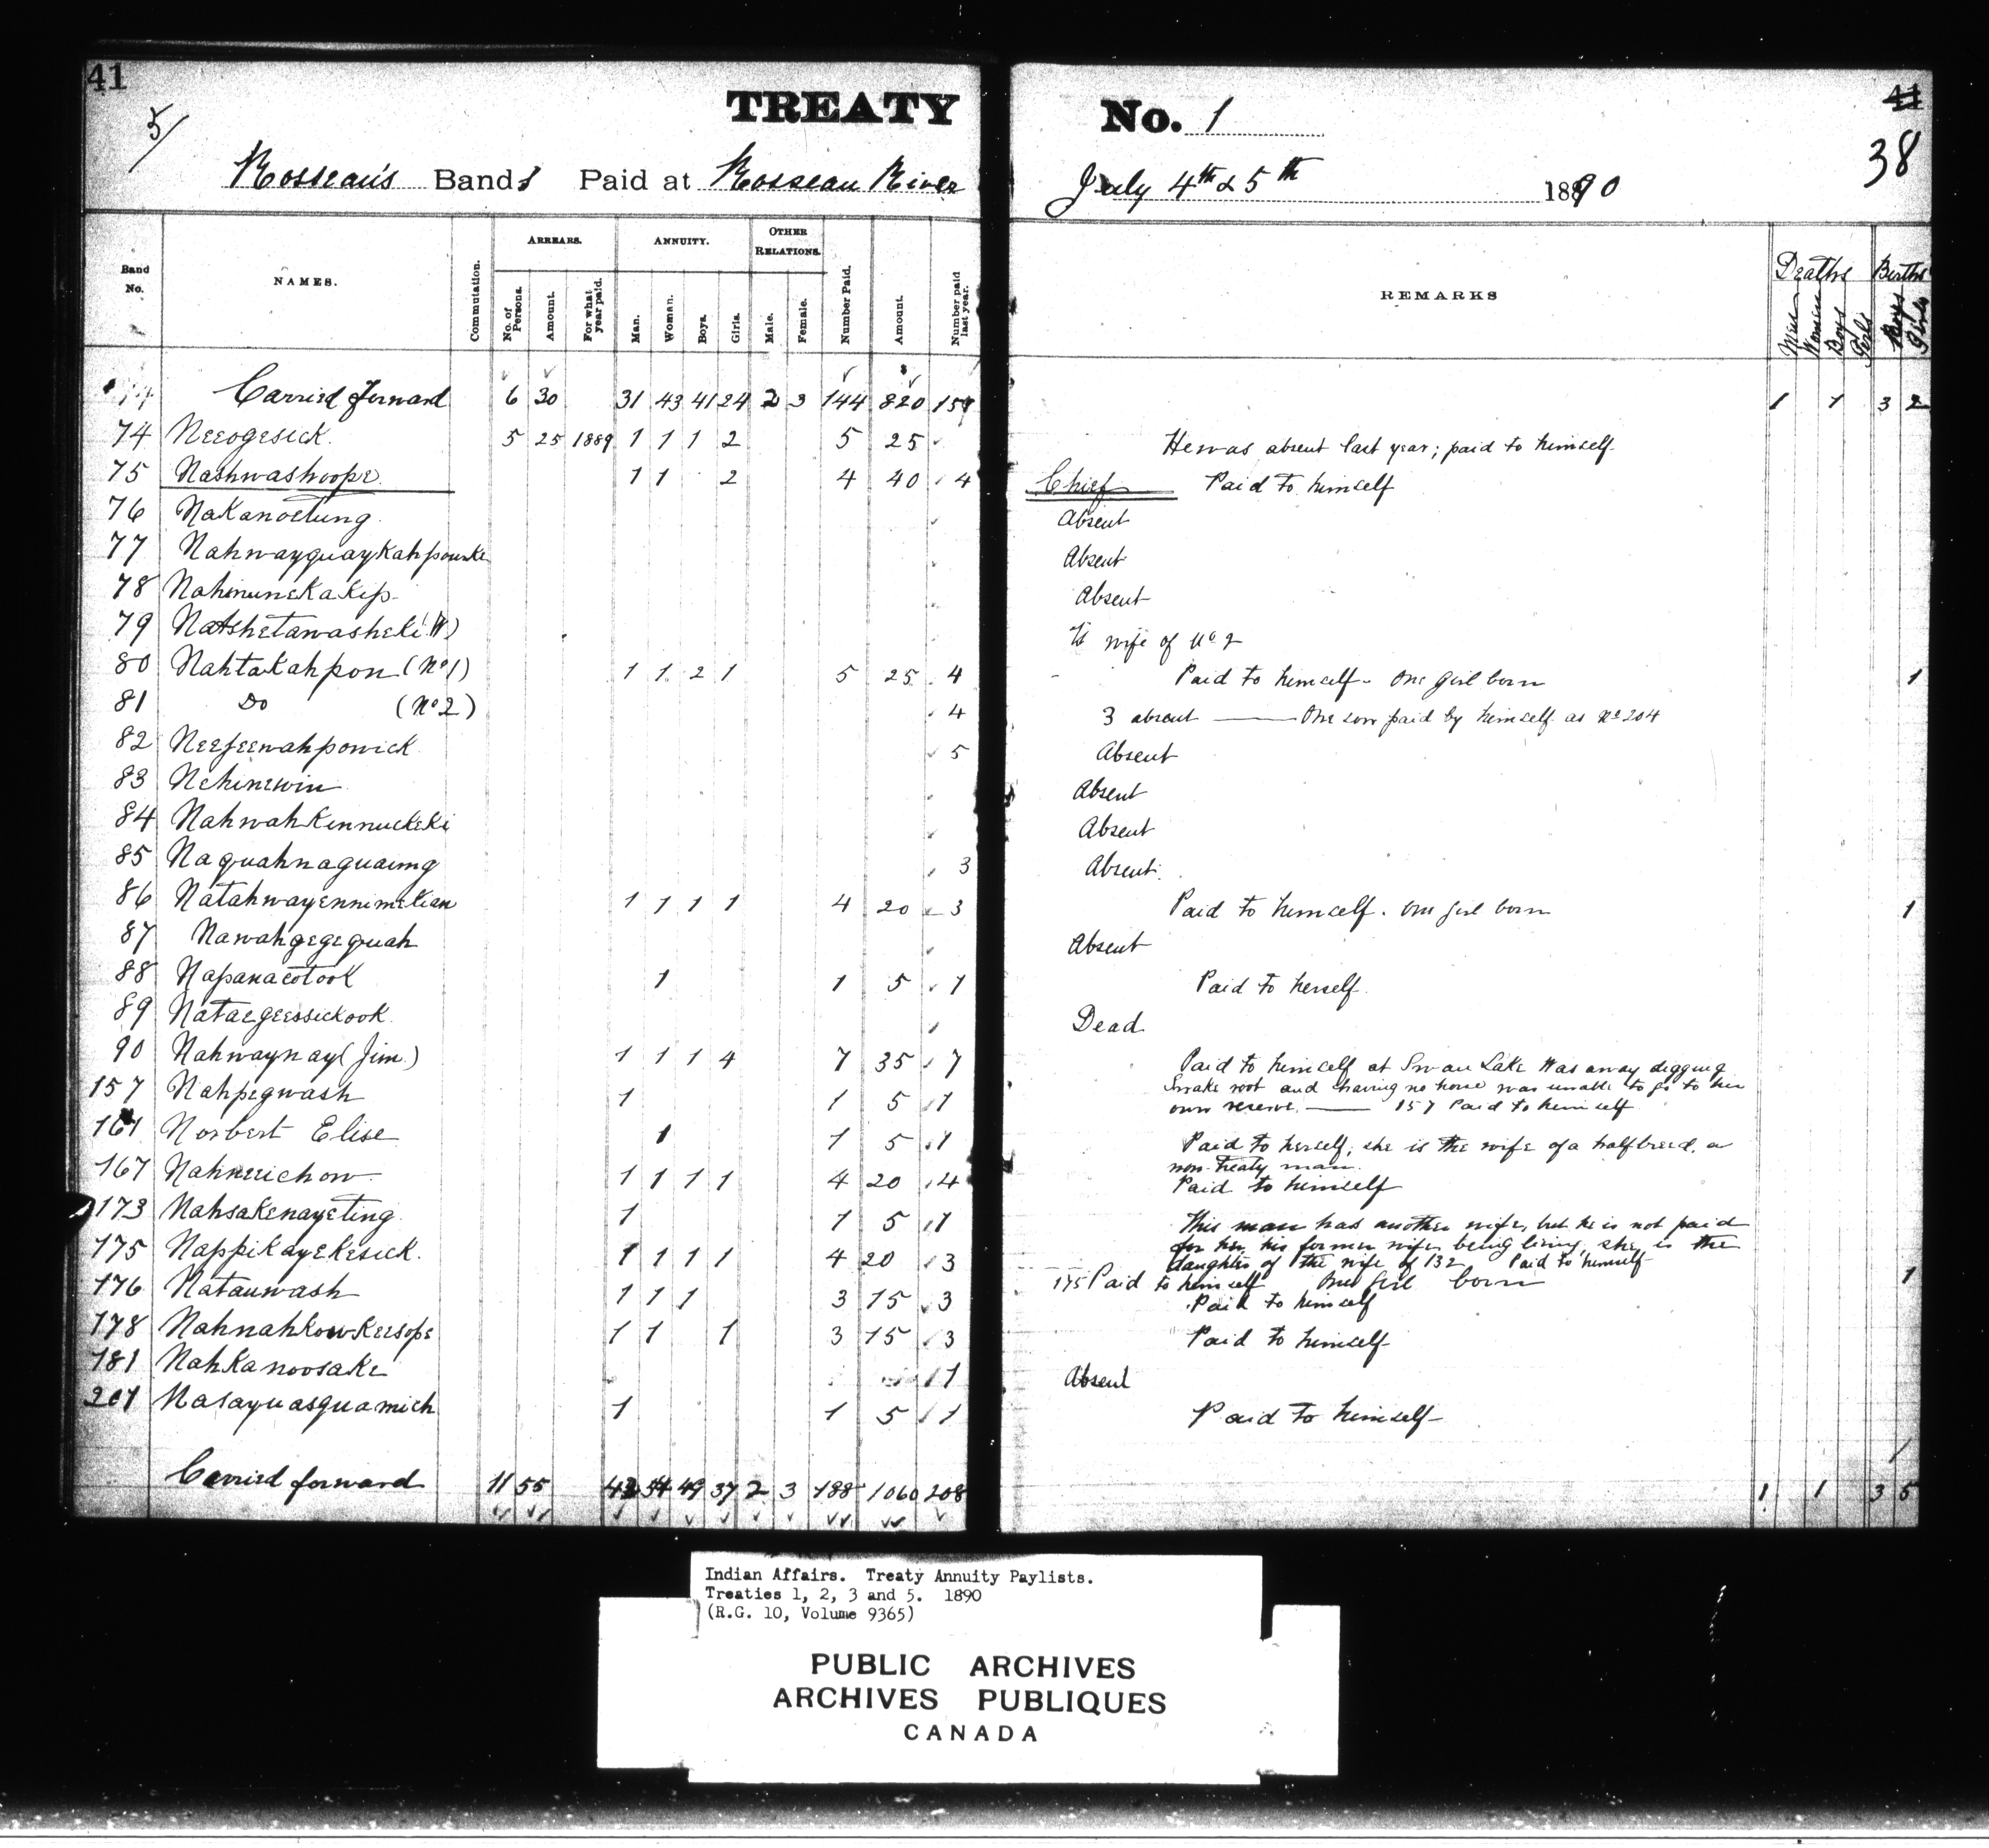 41
5/
TREATY No. 1
41
38
Rosseau's Bands Paid at Rosseau River July 4th & 5th 1890
Band No. NAMES. Commutation. ARREARS. No. of Persons. Amount. For what year paid. ANNUITY. Man. Woman. Boys. Girls. OTHER RELATIONS. Male. Female. Number Paid. Amount. Number paid last year. REMARKS Deaths Men Women Boys Girls Births Boys Girls
Carried forward 6 30 31 43 41 24 2 3 144 820 159 1 1 3 2
74 Neeogesick. 5 25 1889 1 1 1 2 5 25 He was absent last year; paid to himself
75 Nashwashoope. 1 1 2 4 40 4 Chief Paid to himself
76 Nakanoetung Absent
77 Nahwayquaykahpowke Absent
78 Nahinunekakip Absent
79 Natshetawasheke (W) Is wife of No 2
80 Nahtakahpon (No 1) 1 1 2 1 5 25 4 Paid to himself - One girl born 1
81 Do (No 2) 4 3 absent — One son paid by himself as No 204
82 Neejeewahpowick 5 Absent
83 Nehinewin Absent
84 Nahwahkennuckeke Absent
85 Naquahnaguaimg 3 Absent
86 Natahwayennimekian 1 1 1 1 4 20 3 Paid to himself. One girl born 1
87 Nawahgegequah Absent
88 Napanacotook 1 1 5 1 Paid to herself
89 Nataegeessickook Dead
90 Nahwaynay (Jim) 1 1 1 4 7 35 7 Paid to himself at Swan Lake Was away digging
157 Nahpegwash 1 1 5 1 Snake root and having no horse was unable to go to his
own reserve. — 157 Paid to himself
161 Norbert Elise 1 1 5 1 Paid to herself; she is the wife of a halfbreed, a
non-treaty man.
167 Nahneechow 1 1 1 1 4 20 4 Paid to himself
173 Nahsakenayeting 1 1 5 1 This man has another wife, but he is not paid
for her, his former wife being living, she is the
daughter of the wife of 132 Paid to himself
175 Nappikayekesick. 1 1 1 1 4 20 3 175 Paid to himself One Girl born 1
176 Natauwash 1 1 1 3 15 3 Paid to himself
178 Nahnahkowkeesope 1 1 1 3 15 3 Paid to himself
181 Nahkanoosake 1 Absent
201 Nasayuasquamich 1 1 5 1 Paid to himself
1
Carried forward 11 55 42 54 49 37 2 3 188 1060 208 1 1 3 5
Indian Affairs. Treaty Annuity Paylists.
Treaties 1, 2, 3 and 5. 1890
(R.G. 10, Volume 9365)
PUBLIC ARCHIVES
ARCHIVES PUBLIQUES
CANADA